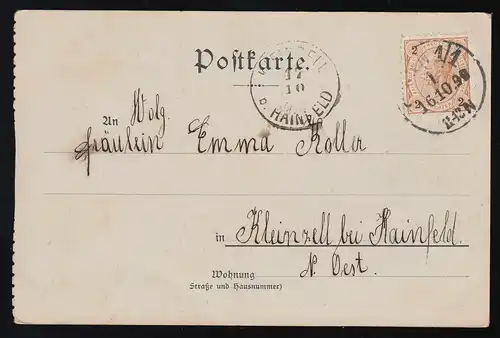 Postkarte.
17
10
b. HAINFELD
2
1/1
16.10.98
An Wolg.
Fräulein Emma Koller
in Kleinzell bei Hainfeld.
N. Oest.
Wohnung
(Straße und Hausnummer)